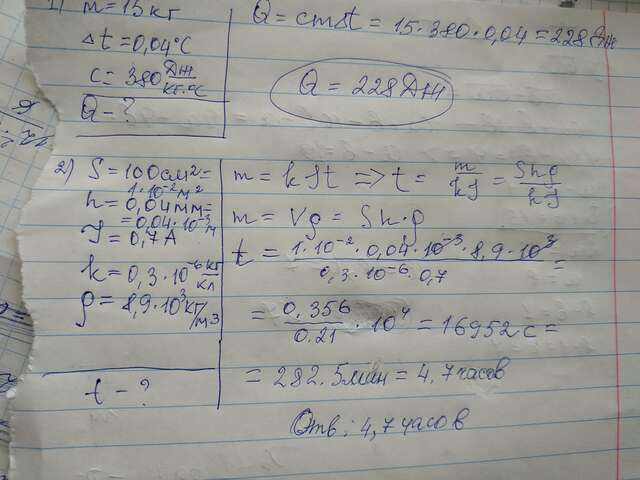 1) m = 15 кг
Δt = 0,04°C
c = 380 Дж/кг·°C
Q - ?
Q = cmΔt = 15·380·0,04 = 228 Дж
Q = 228 Дж
2) S = 100 см² =
1·10⁻² м²
h = 0,04 мм =
= 0,04·10⁻³ м
J = 0,7 A
k = 0,3·10⁻⁶ кг/кл
ρ = 8,9·10³ кг/м³
t - ?
m = kJt => t = m/kJ = Shρ/kJ
m = Vρ = Sh·ρ
t = 1·10⁻²·0,04·10⁻³·8,9·10³ / 0,3·10⁻⁶·0,7 =
= 0,356/0,21 · 10⁴ = 16952 с =
= 282,5 мин = 4,7 часов
Отв: 4,7 часов